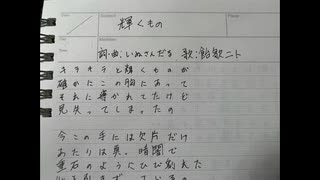 輝くもの
詞・曲:いぬさんだる 歌:飴欲ニト
キラキラと輝くものが
確かにこの胸にあって
それに導かれてたけど
見失ってしまったの
今この手には欠片だけ
あたりは真っ暗闇で
宝石のようにひび割れた